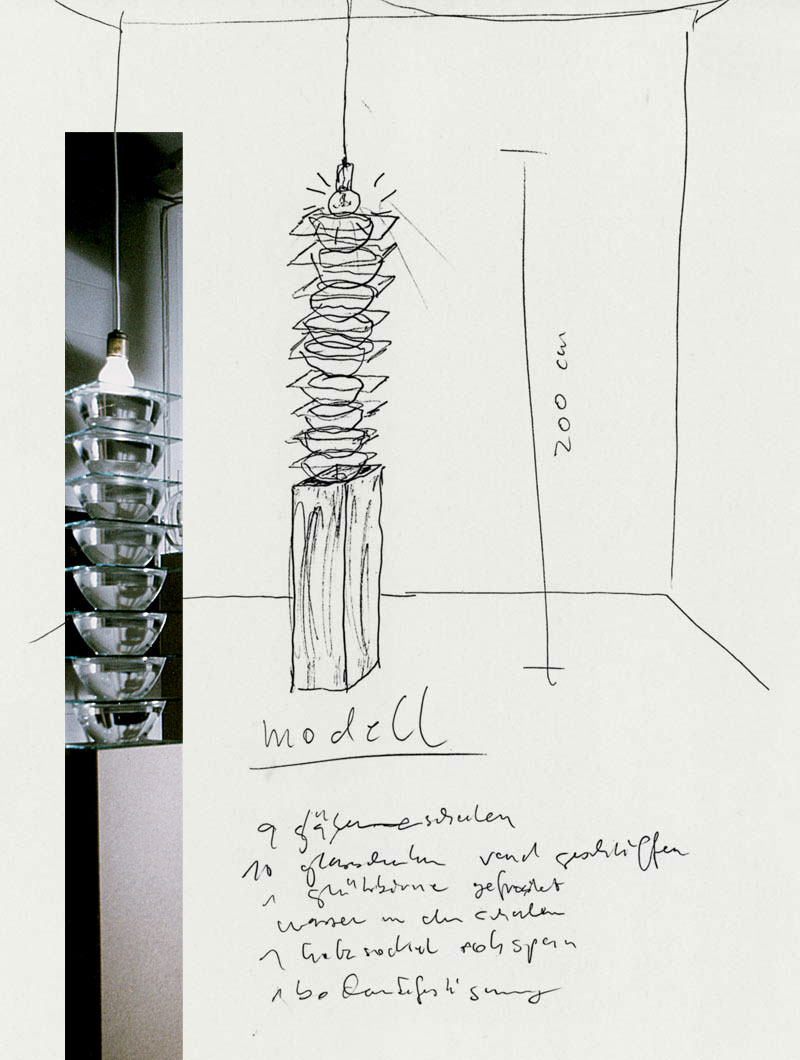 200 cm
modell
9 schalen
10 rand geschliffen
1 glühbirne gefrostet
wasser in den schalen
1 holzsockel rohspan
1